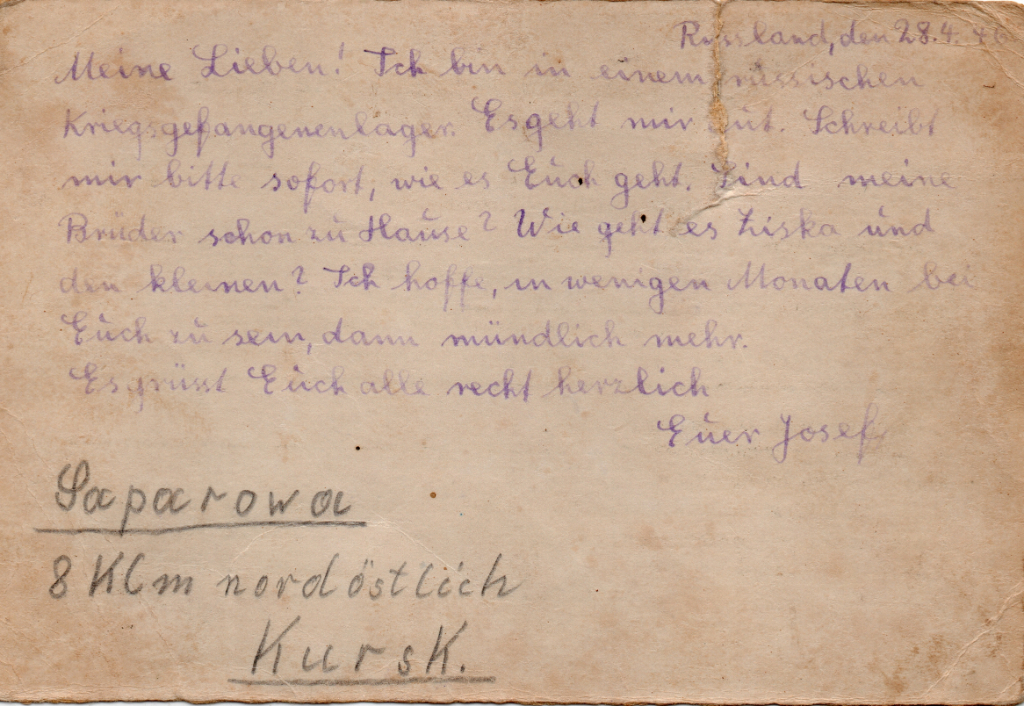 Russland, den 28.4.46
Meine Lieben! Ich bin in einem russischen
Kriegsgefangenenlager. Es geht mir gut. Schreibt
mir bitte sofort, wie es Euch geht. Sind meine
Brüder schon zu Hause? Wie geht es Ziska und
den kleinen? Ich hoffe, in wenigen Monaten bei
Euch zu sein, dann mündlich mehr.
Es grüsst Euch alle recht herzlich
Euer Josef
Saparowa
8 Klm nordöstlich
Kursk.